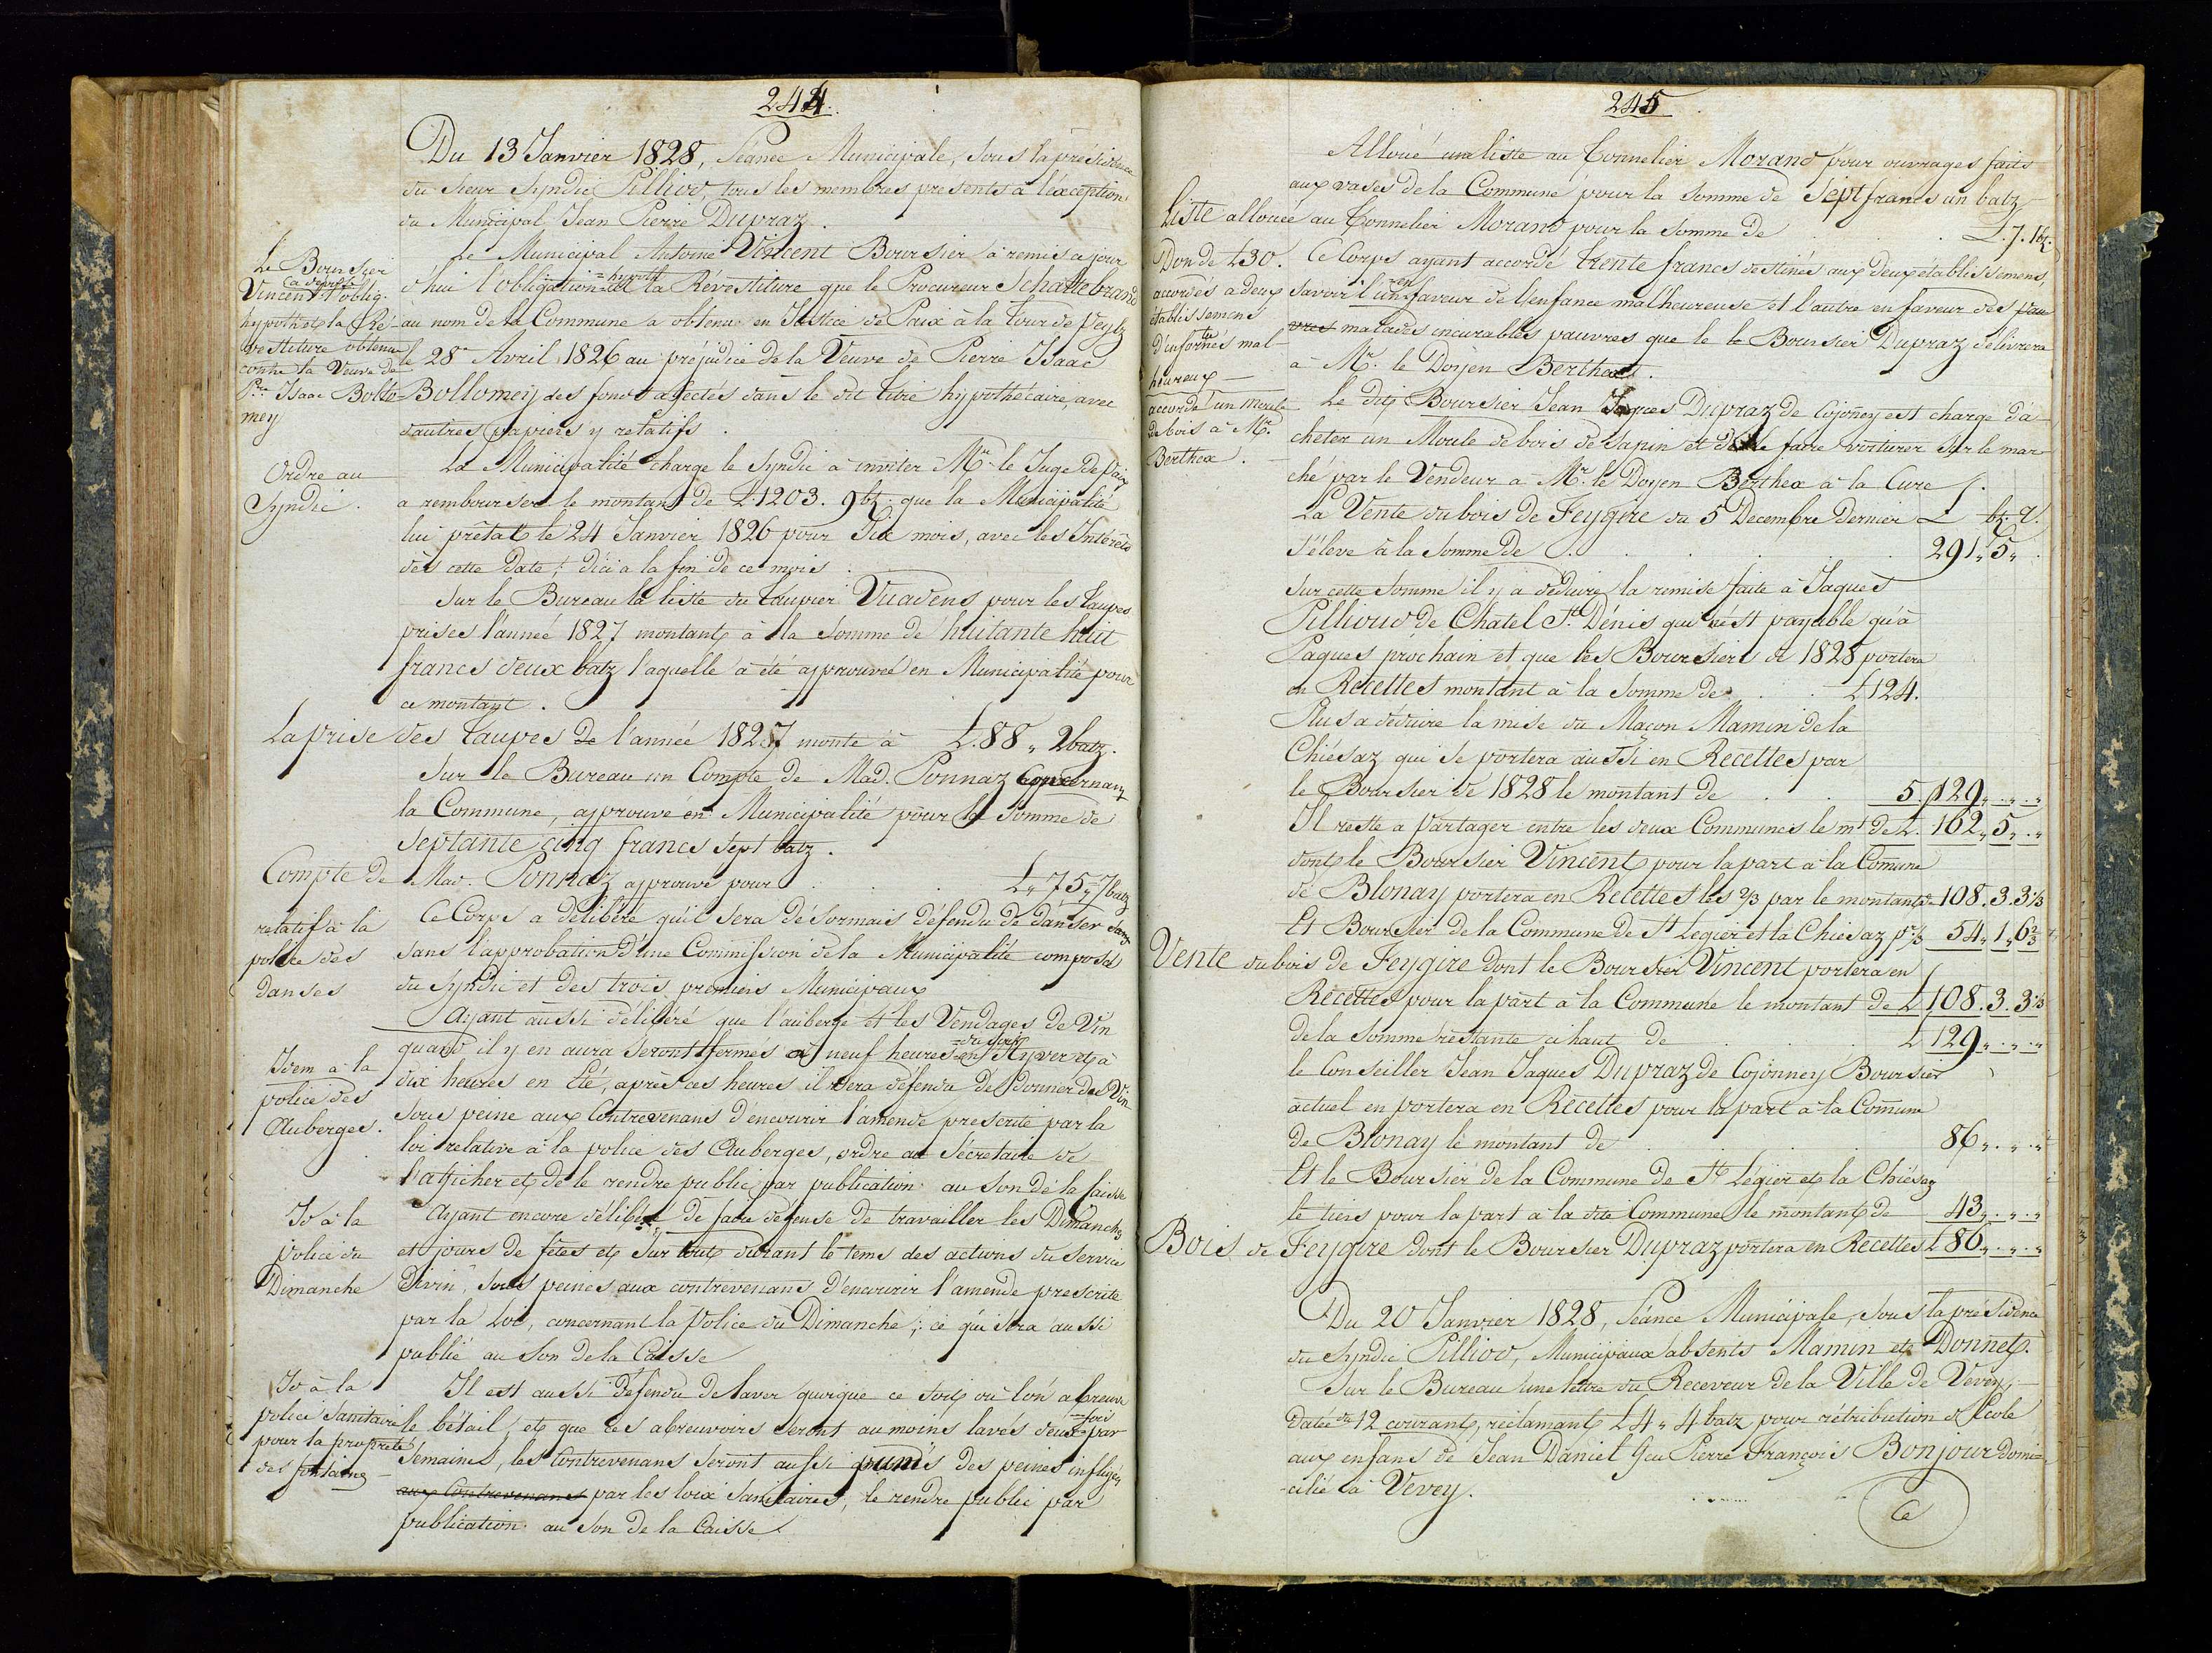 244.
Du 13 Janvier 1828, Séance Municipale, sous la présidence
du Sieur Syndic Pilliod, tous les membres presents à l'exception
du Municipal Jean Pierre Dupraz.
Le Boursier
a deposé
Vincent l'oblig.
hypoth et la Ré-
vestiture obtenue
contre la Veuve de
Pre. Isaac Bollo-
mey
Le Municipal Antoine Vincent Boursier a remis a jour
d'hui l'obligation =hypoth= et la Révestiture que le Procureur Schattebrand
au nom de la Commune a obtenu en Justice de Paix à la Tour de Peylz
le 28e Avril 1826 au préjudice de la Veuve de Pierre Isaac
Bollomey des fonds affectés dans le dit titre hypothécaire, avec
d'autres papiers y relatifs.
Ordre au
Syndic.
La Municipalité charge le Syndic à inviter Mr. le Juge de Paix
a rembourser le montant de L 1203. 9 bz. que la Municipalité
lui prêtat le 24 Janvier 1826 pour Six mois, avec les Intérêts
dès cette date; d'ici a la fin de ce mois.
Sur le Bureau la liste du taupier Vuadens pour les taupes
prises l'année 1827 montant à la somme de huitante huit
francs deux batz laquelle a été approuvée en Municipalité pour
ce montant.
La prise des taupes de l'année 1827 monte à L. 88 „ 2 batz.
Sur le Bureau un Compte de Mad. Ponnaz Concernant
la Commune, approuvé en Municipalité pour la Somme de
Septante cinq francs sept batz.
Compte de Mad. Ponnaz approuvé pour . . . L „ 75 „ 7 batz
relatif à la
police des
danses
Ce Corps a délibéré qu'il sera désormais défendu de danser dans
sans l'approbation d'une Commission de la Municipalité composée
du Syndic et des trois premiers Municipaux
Idem à la
police des
Auberges.
Ayant aussi délibéré que l'auberge et les Vendages de Vin
quand il y en aura seront fermés à neuf heures =du soir= en Hyver et à
dix heures en Eté, après ces heures il sera défendu de donner du Vin
sous peine aux Contrevenans d'encourir l'amende prescrite par la
loi relative à la police des Auberges, ordre au Sécretaire de
l'afficher et de le rendre public par publication au Son de la Caisse
Id à la
police du
Dimanche
Ayant encore délibéré de faire défense de travailler les Dimanches
et jours de fêtes et sur tout durant le tems des actions du Service
Divin, sous peines aux contrevenans d'encourir l'amende prescrite
par la Loi, concernant la Police du Dimanche; ce qui sera aussi
publié au Son de la Caisse
Id à la
police Sanitaire
pour la propreté
des fontaines
Il est aussi défendu de laver quoique ce soit où l'on abreuve
le bétail, et que ces abreuvoirs seront au moins lavés deux =fois= par
Semaines, les Contrevenans seront aussi punis des peines infligées
aux Contrevenans par les loix Sanitaires, le rendre public par
publication au Son de la Caisse.
245
Alloué une liste au Tonnelier Morand pour ouvrages faits
aux vases de la Commune pour la somme de Sept francs un batz
Liste allouée au Tonnelier Morand pour la Somme de . . . L. 7. 1 bz.
Don de L 30.
accordés a deux
etablissemens
d'infortunés mal-
heureux
Ce Corps ayant accordé trente francs destinés aux deux établissemens,
savoir l'un =en= faveur de l'enfance malheureuse et l'autre en faveur des pau
vres malades incurables pauvres que le Boursier Dupraz délivrera
à Mr. le Doyen Berthex.
accordé un Moule
de bois à Mr.
Berthex.
Le dit Boursier Jean Jaques Dupraz de Cojonney est charge d'a-
cheter un Moule de bois de Sapin et de le faire voiturer sur le mar-
ché par le Vendeur à Mr. le Doyen Berthex à la Cure.
La Vente du bois de Feygire du 5 Decembre dernier L bz. r.
s'éleve à la Somme de . . . 291 „ 5 „ .
Sur cette Somme il y a déduire la remise faite à Jaques
Pillioud de Chatel St. Dénis qui n'est payable qu'à
Paques prochain et que les Boursiers de 1828 portera
en Recettes montant à la Somme de . . L 124.
Plus a déduire la mise du Maçon Mamin de la
Chiésaz qui se portera aussi en Recettes par
le Boursier de 1828 le montant de . . 5. 129 „ . „ . „
Il reste a Partager entre les deux Communes le mt. de L. 162 „ 5 „ . „
dont le Boursier Vincent pour la part à la Comune
de Blonay portera en Recettes les 2/3 par le montant de 108. 3. 3 1/3
Et Boursier de la Commune de St Légier et la Chiésaz pr. 1/3 54 „ 1 „ 6 2/3
Vente du bois de Feygire dont le Boursier Vincent portera en
Recettes pour la part à la Commune le montant de L 108. 3. 3 1/3
de la Somme restante ci haut de . . . L 129 „ . „ . „
le Conseiller Jean Jaques Dupraz de Cojonney Boursier
actuel en portera en Recettes pour la part à la Comune
de Blonay le montant de . . . 86 „ . „ . „
Et le Boursier de la Commune de St Légier et la Chiésaz
le tiers pour la part à la dite Commune le montant de 43 „ . „ . „
Bois de Feygire dont le Boursier Dupraz portera en Recettes L 86 „ . „ . „
Du 20 Janvier 1828, Séance Municipale, sous la présidence
du Syndic Pilliod, Municipaux absents Mamin et Donnet.
Sur le Bureau une lettre du Receveur de la Ville de Vevey,
datée du 12 courant, réclamant L 4 „ 4 batz pour rétribution d'Ecole
aux enfans de Jean Daniel feu Pierre François Bonjour domi-
cilié à Vevey.
Ce